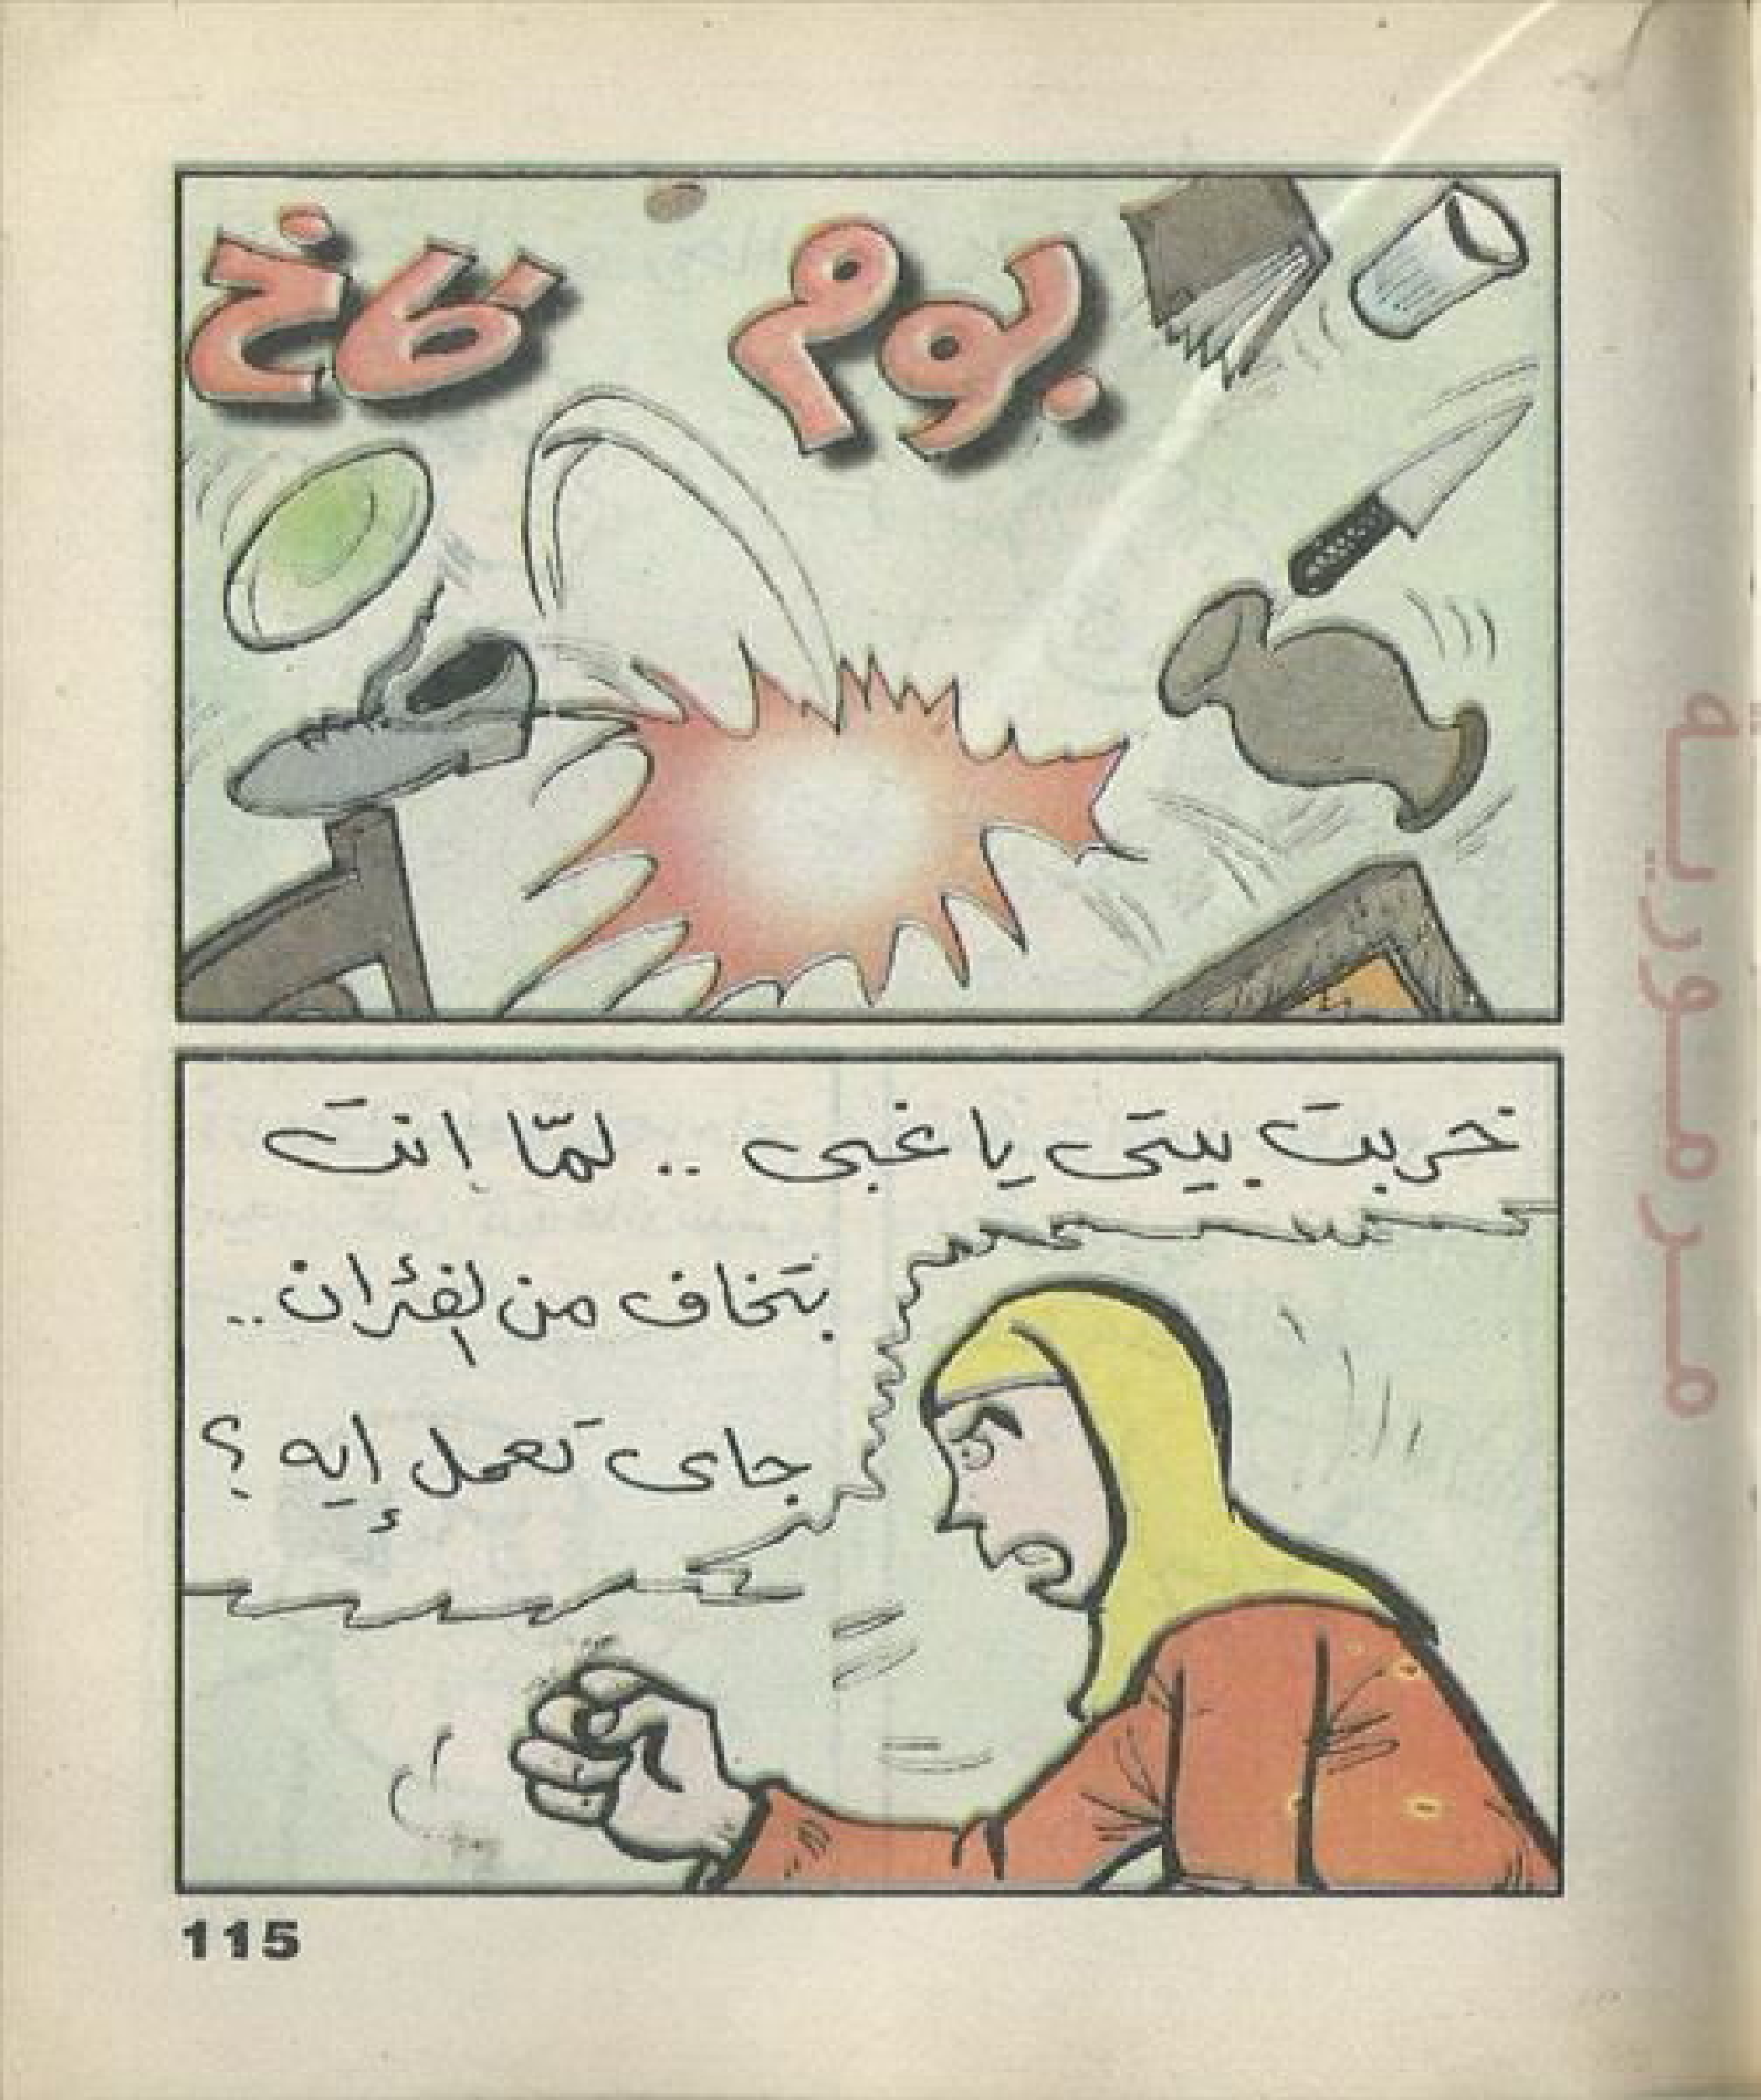 بوم طاخ
خربت بيتى يا غبى .. لمّا إنت
بتخاف من لفئران ..
جاى تعمل إيه ؟
115
مرموريه